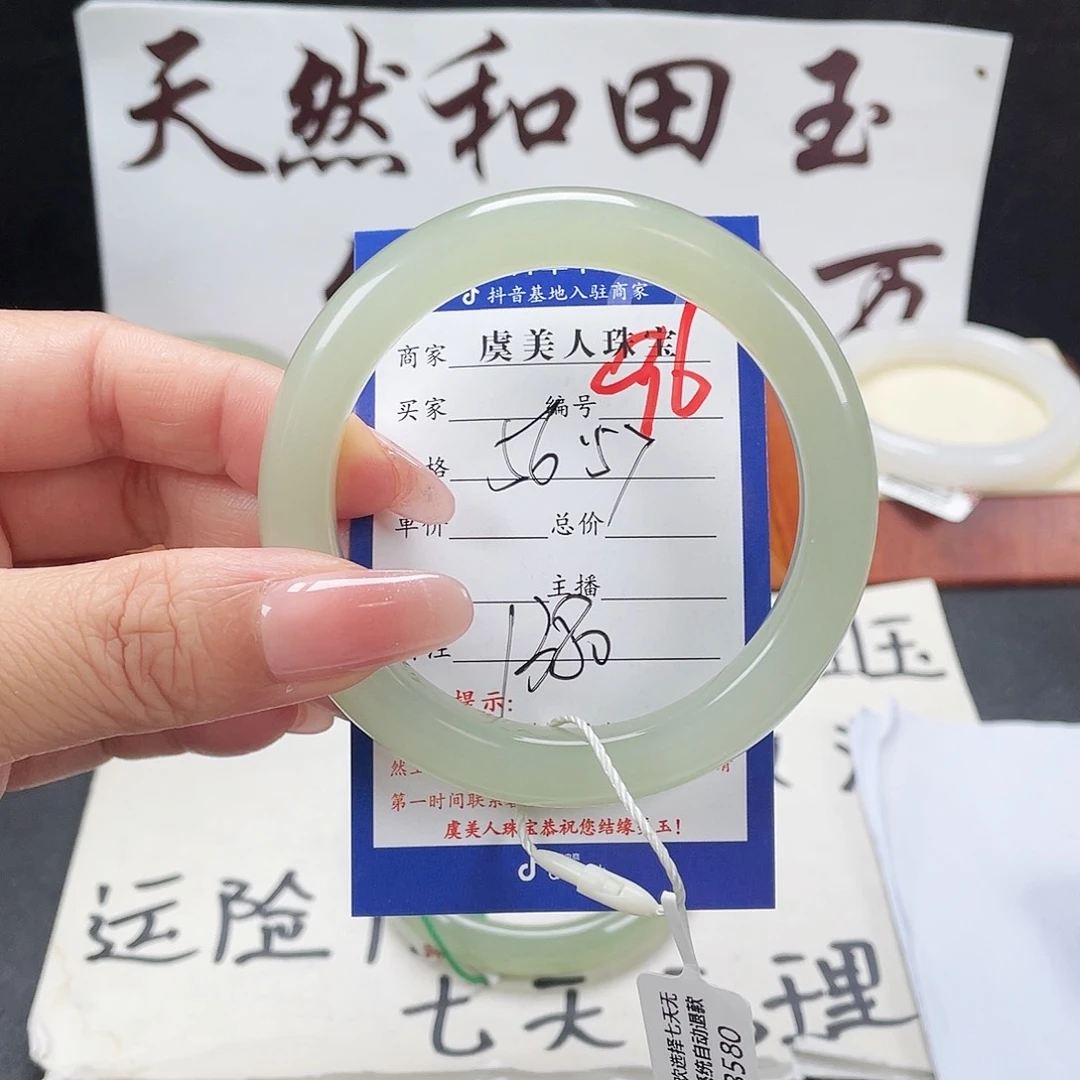 天然和田玉
万
抖音基地入驻商家
商家 虞美人珠宝
96
买家 编号
格 56 57
单价 总价
主播
注
提示:
然
第一时间联系
虞美人珠宝恭祝您结缘美玉!
运险
七天 理
欢选择七天无
系统自动退款
3580